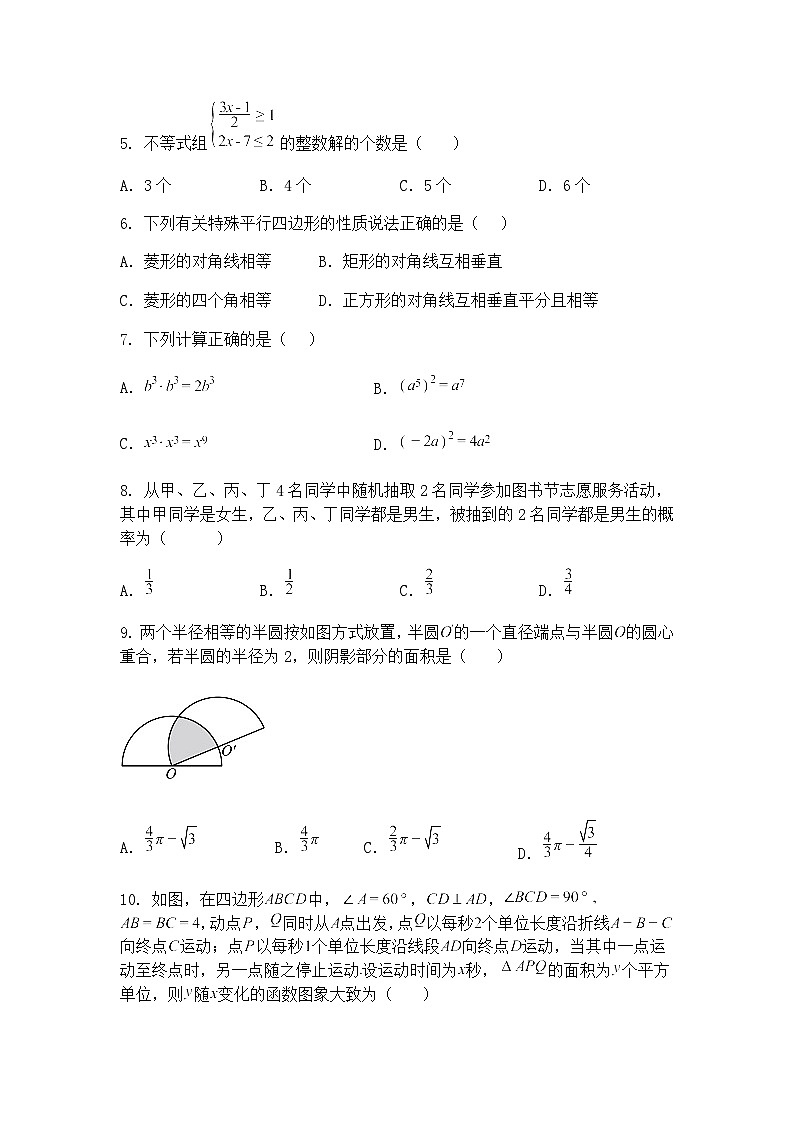 5. 不等式组 { (3x-1)/2 ≥ 1, 2x-7 ≤ 2 的整数解的个数是（  ）
A. 3个 B. 4个 C. 5个 D. 6个
6. 下列有关特殊平行四边形的性质说法正确的是（ ）
A. 菱形的对角线相等 B. 矩形的对角线互相垂直
C. 菱形的四个角相等 D. 正方形的对角线互相垂直平分且相等
7. 下列计算正确的是（ ）
A. b³·b³=2b³ B. (a⁵)²=a⁷
C. x³·x³=x⁹ D. (-2a)²=4a²
8. 从甲、乙、丙、丁4名同学中随机抽取2名同学参加图书节志愿服务活动，
其中甲同学是女生，乙、丙、丁同学都是男生，被抽到的2名同学都是男生的概
率为（  ）
A. 1/3 B. 1/2 C. 2/3 D. 3/4
9. 两个半径相等的半圆按如图方式放置，半圆O′的一个直径端点与半圆O的圆心
重合，若半圆的半径为2，则阴影部分的面积是（  ）
O′
O
A. 4/3π-√3 B. 4/3π C. 2/3π-√3 D. 4/3π-√3/4
10. 如图，在四边形ABCD中，∠A=60°，CD⊥AD，∠BCD=90°，
AB=BC=4，动点P，Q同时从A点出发，点Q以每秒2个单位长度沿折线A-B-C
向终点C运动；点P以每秒1个单位长度沿线段AD向终点D运动，当其中一点运
动至终点时，另一点随之停止运动.设运动时间为x秒，ΔAPQ的面积为y个平方
单位，则y随x变化的函数图象大致为（  ）